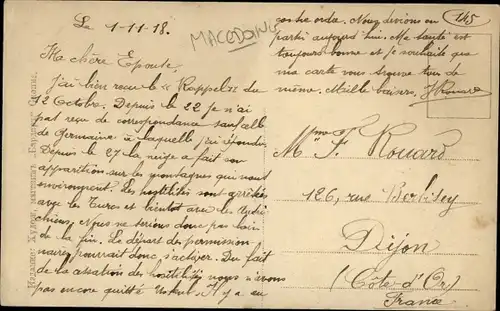 Le 1-11-18.
MACEDOINE
145
Ma chère Epouse,
J'ai bien reçu le « Rappel » du
12 Octobre. Depuis le 22 je n'ai
pas reçu de correspondance sauf celle
de Germaine à laquelle j'ai répondu
Depuis le 27 la neige a fait son
apparition sur les montagnes qui nous
environnent. Les hostilités sont arrêtées
avec les Turcs et bientôt avec les Autri
chiens. Nous ne serions donc pas loin
de la fin. Le départ des permission
naires pourrait donc s'activer. Du fait
de la cessation des hostilités nous n'avons
pas encore quitté Uskub. Il y a eu
contre ordre. Nous devions en
partir aujourd'hui. Ma santé est
toujours bonne et je souhaite que
ma carte vous trouve tous de
même. Mille baisers. F Rouard
Mme F. Rouard
126, rue Berbisey
Dijon
(Côte-d'Or)
France